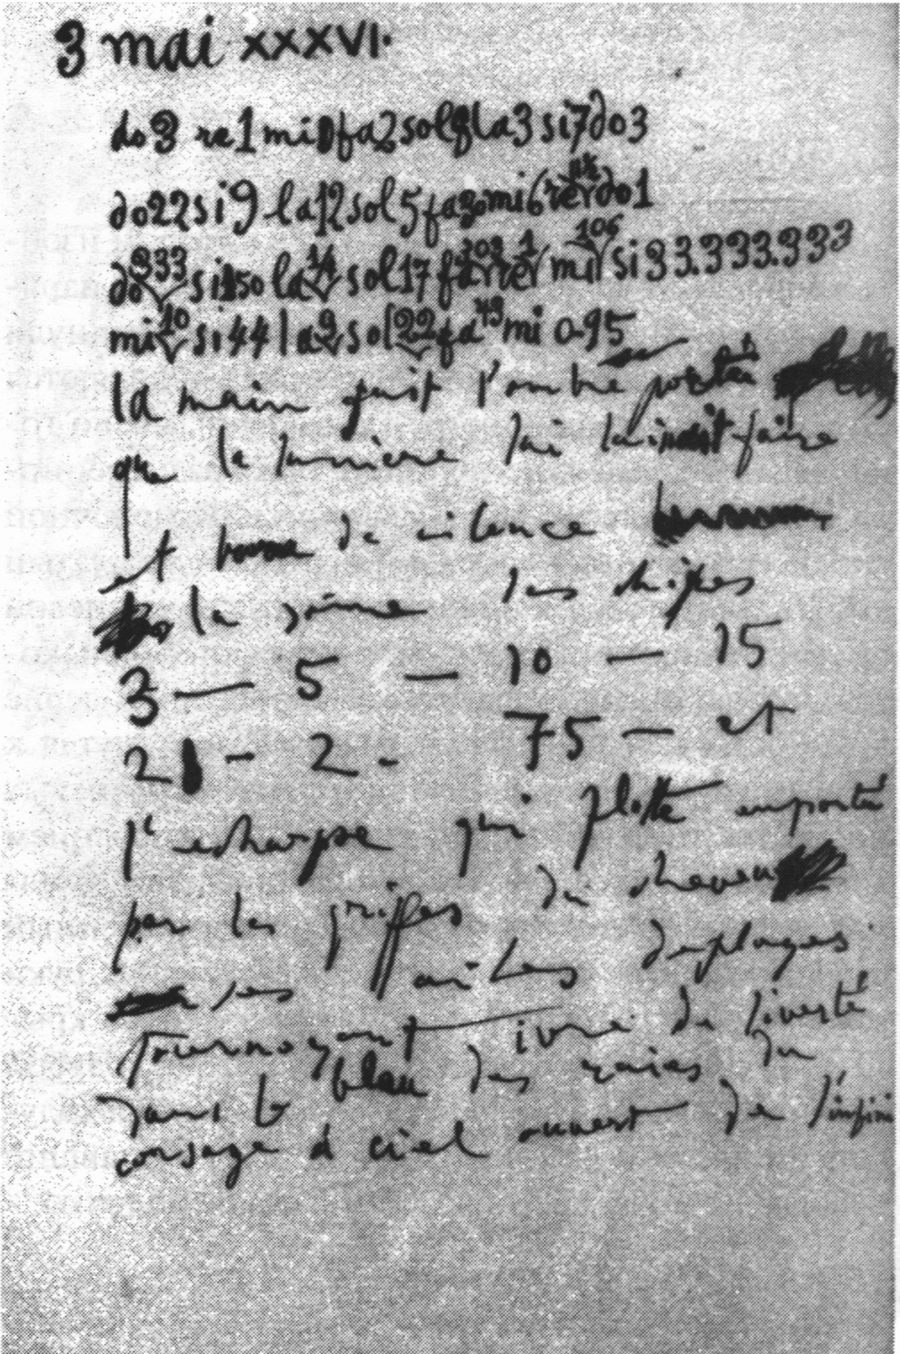 3 mai XXXVI.
do 3 re 1 mi 0 fa 2 sol 8 la 3 si 7 do 3
do 22 si 9 la 12 sol 5 fa 30 mi 6 re 11½ do 1
do 333 si 150 la 14 sol 17 fa 303 re 1 mi 106 si 33.333.333
mi 10 si 44 la 9 sol 22 fa 43 mi 0.95
la main fait l'ombre portée
que la lumière lui faire
et de silence
la somme les chifres
3 — 5 — 10 — 15
21 — 2 - 75 — et
l'echarpe qui flotte emporté
par les griffes du cheveu
ses ailes deployees
tournoyant ivre de liverté
dans le bleu des raies du
corsage à ciel ouvert de l'infini